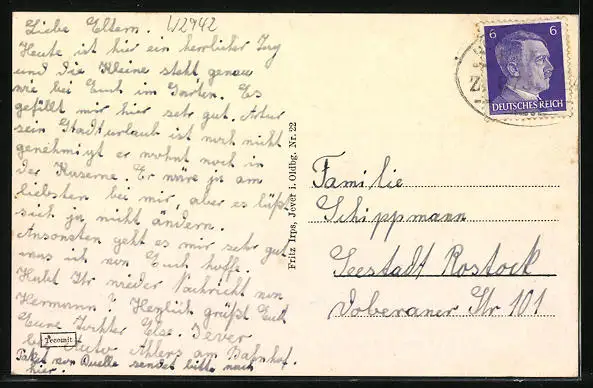 Liebe Eltern. 1/2942
Heute ist hier ein herrlicher Tag
und die Kleine steht genau
wie bei Euch im Garten. Es
gefällt mir hier sehr gut. Artur
sein Stadturlaub ist noch nicht
genehmigt er wohnt noch in
der Kaserne. Er wäre ja am
liebsten bei mir, aber es läßt
sich ja nicht ändern.
Ansonsten geht es mir sehr gut
was ich von Euch hoffe.
Habt Ihr wieder Nachricht von
Hermann? Herzlich grüßt Euch
Eure Tochter Else. Jever
bei Ahlers am Bahnhof.
Paket von Quelle sendet bitte nach
hier.
Fritz Irps, Jever i. Oldbg. Nr. 22
6 6
DEUTSCHES REICH
Familie
Schippmann
Seestadt Rostock
Doberaner Str 101